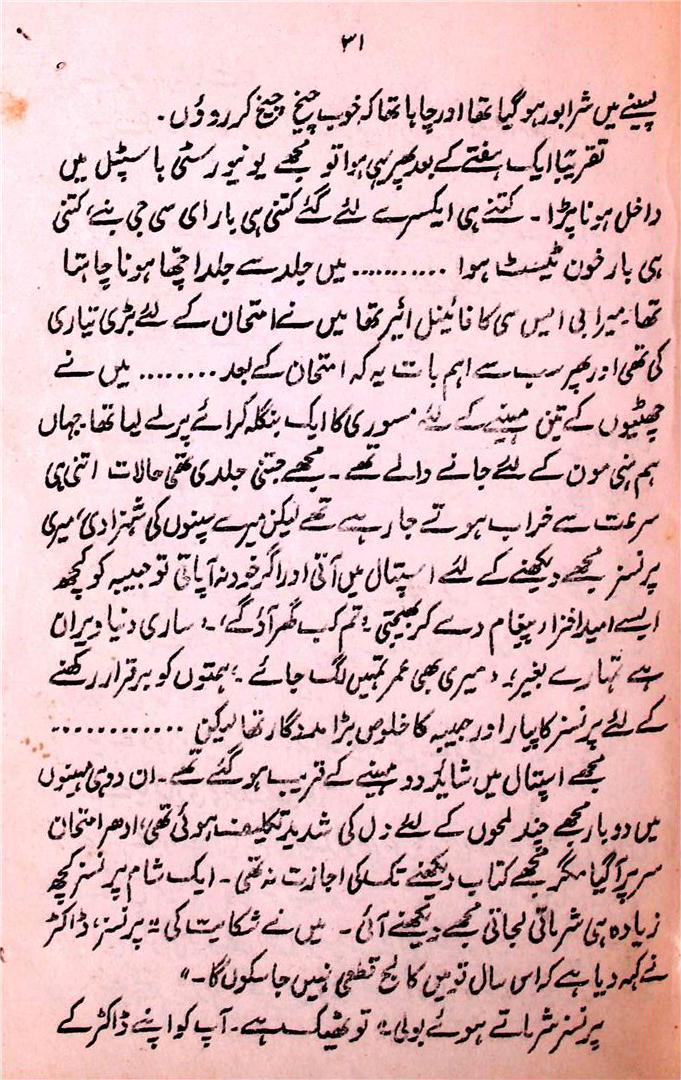 ۳۱
پسینے میں شرابور ہو گیا تھا اور چاہا تھا کہ خوب چیخ چیخ کر روؤں۔
تقریباً ایک ہفتے کے بعد پھر یہی ہوا تو مجھے یونیورسٹی ہاسپٹل میں
داخل ہونا پڑا۔ کتنے ہی ایکسرے لئے گئے کتنی ہی بار ای سی جی بنے، کتنی
ہی بار خون ٹیسٹ ہوا .......... میں جلد سے جلد اچھا ہونا چاہتا
تھا۔ میرا بی ایس سی کا فائینل ائیر تھا میں نے امتحان کے لئے بڑی تیاری
کی تھی اور پھر سب سے اہم بات یہ کہ امتحان کے بعد ........ میں نے
چھٹیوں کے تین مہینے کے لئے مسوری کا ایک بنگلہ کرائے پر لے لیا تھا۔ جہاں
ہم ہنی مون کے لئے جانے والے تھے۔ مجھے جتنی جلدی تھی حالات اتنی ہی
سرعت سے خراب ہوتے جا رہے تھے لیکن میرے سپنوں کی شہزادی، میری
پرنسز مجھے دیکھنے کے لئے اسپتال میں آتی اور اگر خود نہ آپاتی تو حبیبہ کو کچھ
ایسے امید افزا پیغام دے کر بھیجتی ”تم کب گھر آؤ گے“۔ ”ساری دنیا ویران
ہے تمہارے بغیر“۔ ”میری بھی عمر تمہیں لگ جائے۔“ ہمتوں کو برقرار رکھنے
کے لئے پرنسز کا پیار اور حبیبہ کا خلوص بڑا مددگار تھا لیکن ............
مجھے اسپتال میں شاید دو مہینے کے قریب ہو گئے تھے۔ ان دو ہی مہینوں
میں دو بار مجھے چند لمحوں کے لئے دل کی شدید تکلیف ہوئی تھی، ادھر امتحان
سر پر آگیا مگر مجھے کتاب دیکھنے تک کی اجازت نہ تھی۔ ایک شام پرنسز کچھ
زیادہ ہی شرماتی لجاتی مجھے دیکھنے آئی۔ میں نے شکایت کی ”پرنسز، ڈاکٹر
نے کہہ دیا ہے کہ اس سال تو میں کالج قطعی نہیں جا سکوں گا۔“
پرنسز شرماتے ہوئے بولی ”تو ٹھیک ہے۔ آپ کو اپنے ڈاکٹر کے